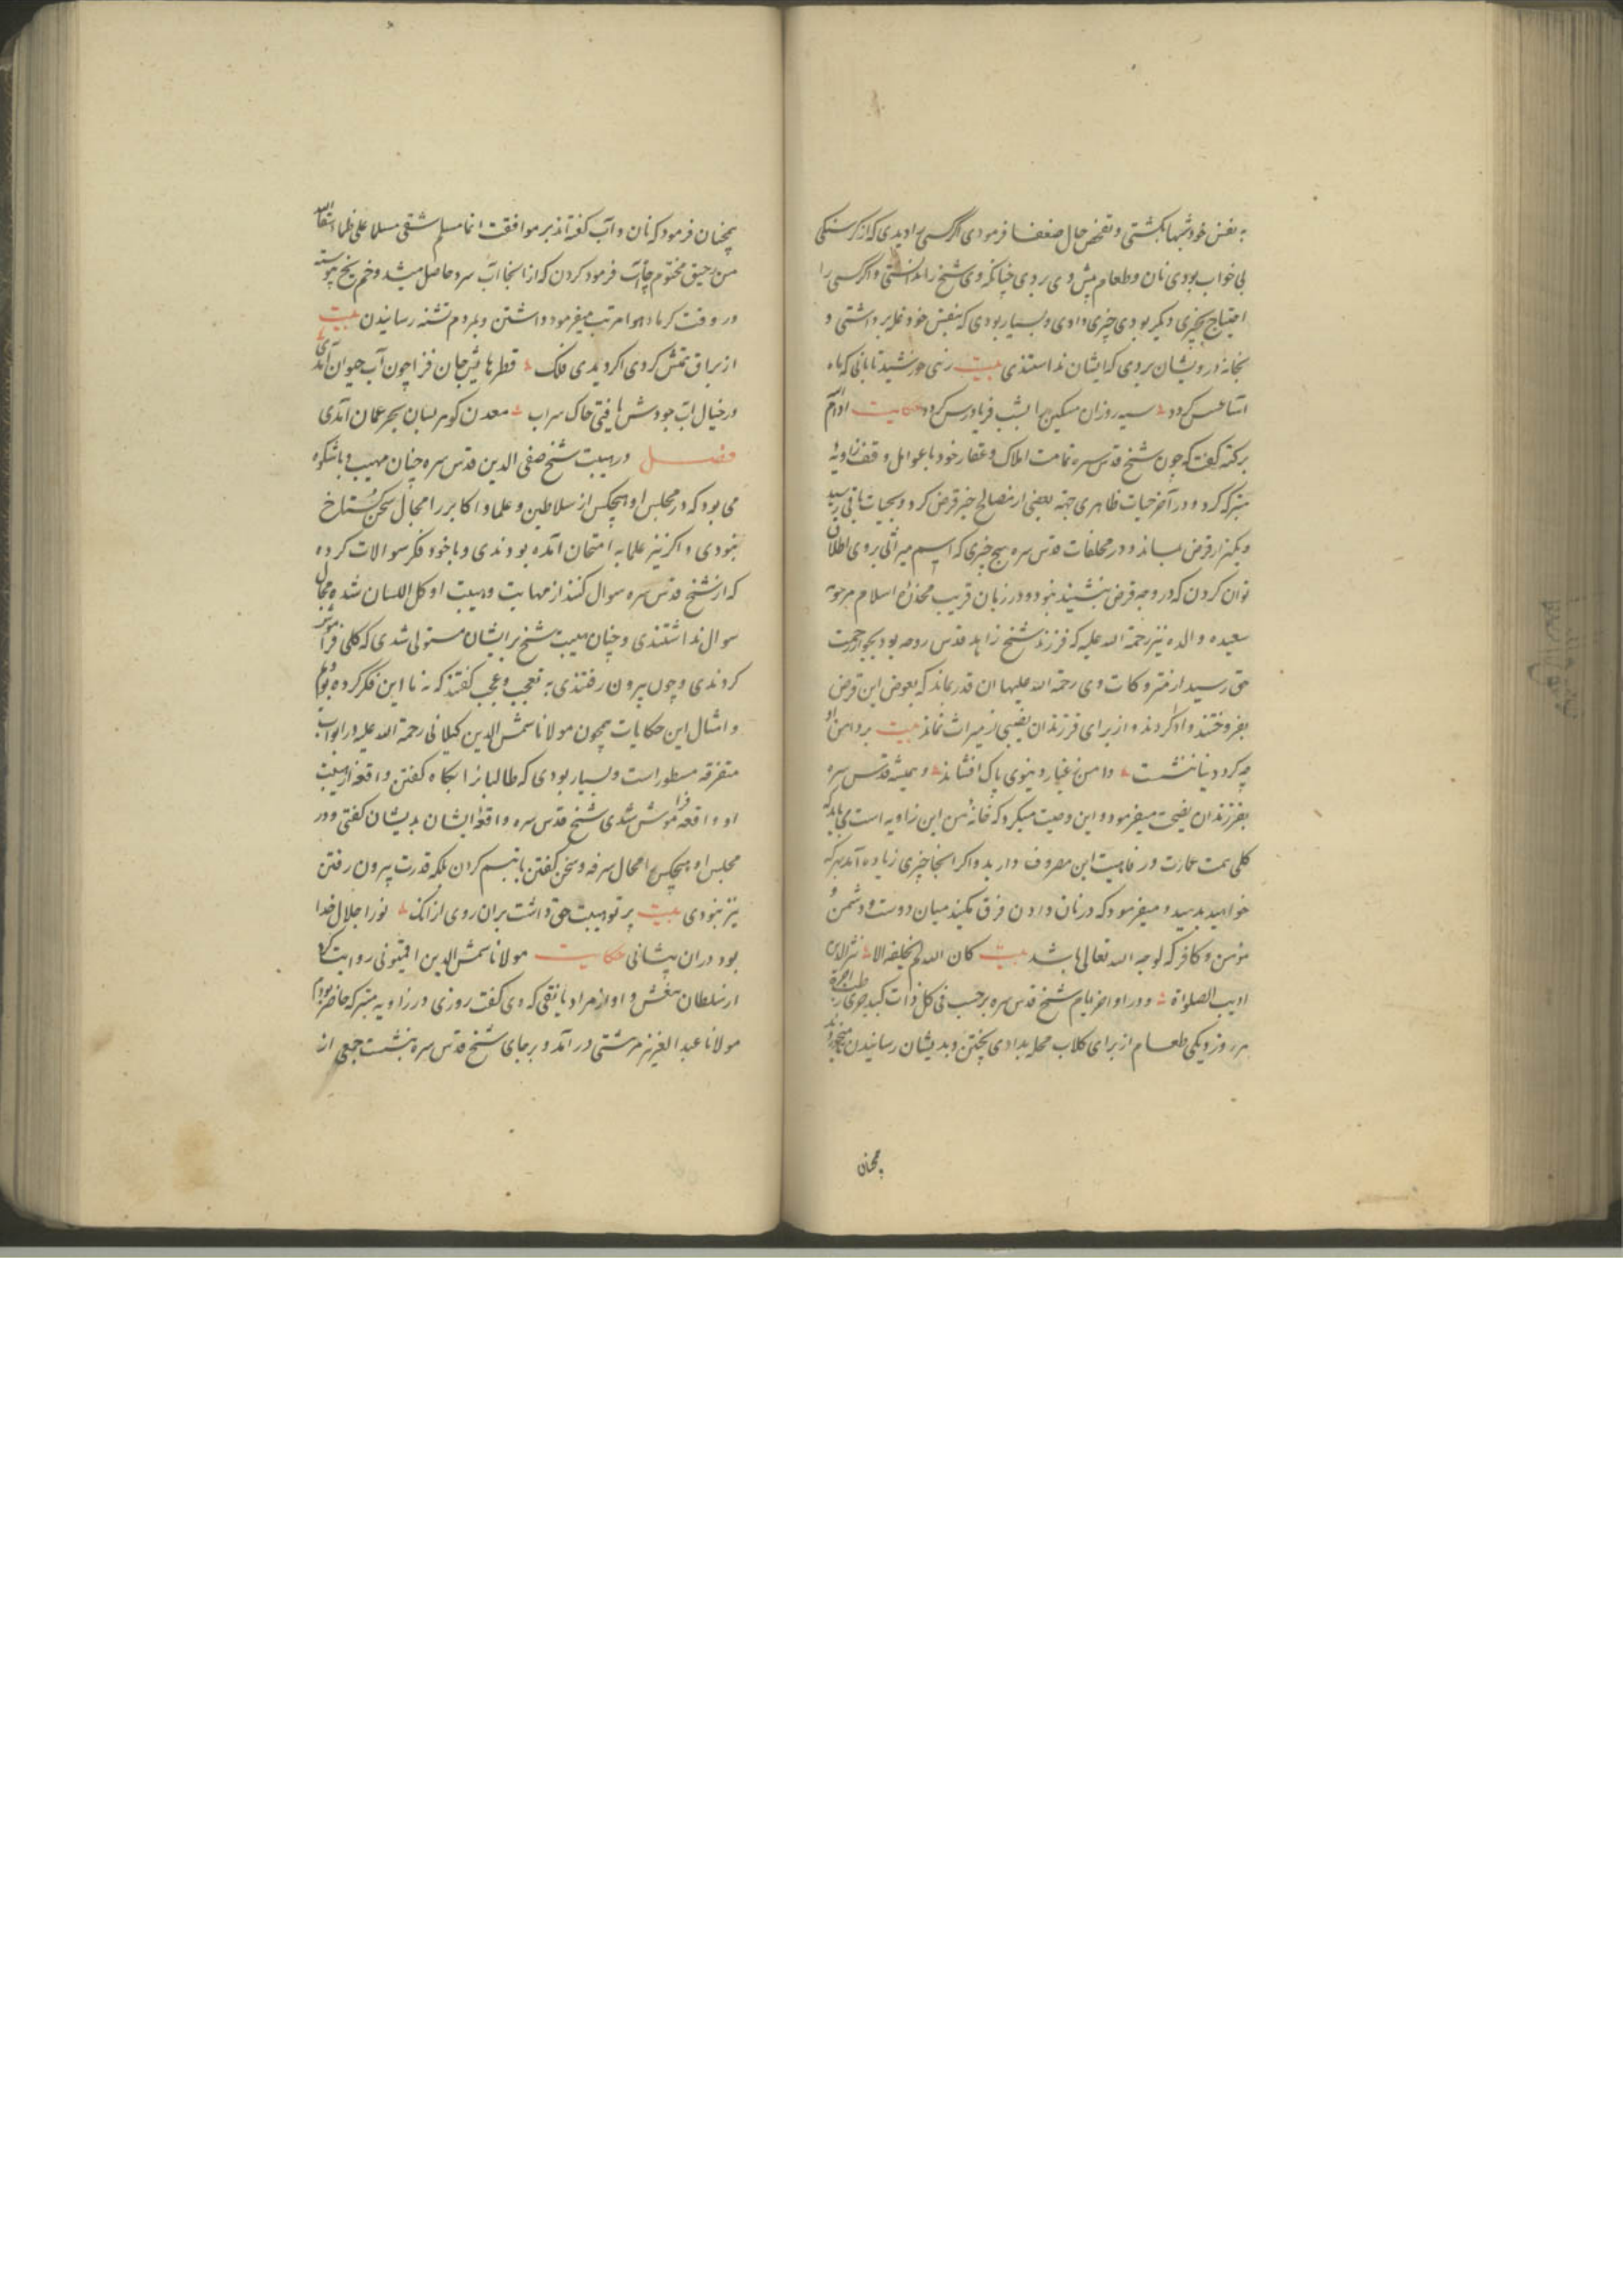 به نفس خود شبها بگشتی و تفحص حال ضعفا فرمودی اگر کسی را دیدی که از کرسنکی
بی خواب بودی نان و طعام پیش وی بردی چنانکه وی شیخ را ندانستی و اگر کسی را
احتیاج بچیزی دیکر بودی چیزی دادی و بسیار بودی که بنفس خود غله برداشتی و
بخانه درویشان بردی که ایشان ندانستندی بیت زهی خورشید تابانی که ماه
آسا عسس کردد سیه روزان مسکین را بشب فریادرس کردد حکایت ادام
برکته کفت که چون شیخ قدس سره تمامت املاک و عقار خود با عوامل وقف زاویهٔ
متبرکه کرد و در آخر حیات ظاهری جهة بعضی از مصالح خیر قرض کرد و بحیات باقی رسید
و یکهزار قرض بماند و در مخلفات قدس سره هیچ چیزی که اسم میراثی بر وی اطلاق
توان کردن که در وجه قرض بنشیند نبود و در زمان قریب مخدرهٔ اسلام مرحومه
سعیده والده نیز رحمة الله علیه که فرزند شیخ زاهد قدس روحه بود بجوار رحمت
حق رسید از متروکات وی رحمة الله علیها ان قدر بماند که بعوض این قرض
بفروختند و ادا کردند و از برای فرزندان نصیبی از میراث نماند بیت بر دامن او
چه کرد دنیا ننشست دامن ز غبار دنیوی پاک افشاند و همیشه قدس سره
بفرزندان نصیحت میفرمود و این وصیت میکرد که خانهٔ من این زاویه است می باید که
کلی همت عمارت و رفاهیت این مصروف دارید و اکر اینجا چیزی زیاده آمد بهر که
خواهید بدهید و میفرمود که در نان دادن فرق مکنید میان دوست و دشمن و
مؤمن و کافر که لوجه الله تعالی باشد بیت کان الله لم یخلقه الا
ادیب الصلواة و در اواخر ایام شیخ قدس سره برحسب فی کل ذات کبد حری
هر روز دیکی طعام از برای کلاب محله بدادی پختن و بدیشان رسانیدن
همچنان
همچنان فرمود که نان و آب کفته اند بر موافقت انما مسلم سقی مسلما علی ظما سقاه الله
من رحیق مختوم چاه آب فرمود کردن که از انجا آب سرد حاصل میشد و خم یخ پیوسته
در وقت کرما هوا مرتب میفرمود داشتن و بمردم تشنه رسانیدن بیت
از براق تمش کردی اکر دیدی فلک قطرهایش جان فزا چون آب حیوان آمدی
در خیال آب جودش یافتی خاک سراب معدن کوهر بسان بحر عمان آمدی
فصل در هیبت شیخ صفی الدین قدس سره چنان مهیب و باشکوه
می بود که در مجلس او هیچکس از سلاطین و علما و اکابر را مجال سخن کستاخ
نبودی و اکر نیز علما به امتحان آمده بودندی و با خود فکر سوالات کرده
که از شیخ قدس سره سوال کنند از مهابت و هیبت او کل اللسان شده مجال
سوال نداشتندی و چنان هیبت شیخ بر ایشان مستولی شدی که کلی فراموش
کردندی و چون بیرون رفتندی به تعجب و عجب کفتند که نه ما این فکر کرده بودیم
و امثال این حکایات همچون مولانا شمس الدین کیلانی رحمة الله علیه در ابواب
متفرقه مسطور است و بسیار بودی که طالبانرا بکاه کفتن واقعه از هیبت
او واقعه فراموش شدی شیخ قدس سره واقعهٔ ایشان بدیشان کفتی و در
مجلس او هیچکس را مجال سرفه و سخن کفتن یا تبسم کردن بلکه قدرت بیرون رفتن
نیز نبودی بیت پرتو هیبت حق داشت بران روی از آنک نور اجلال خدا
بود در ان پیشانی حکایت مولانا شمس الدین اقمیونی روایت کرد
از سلطان بغمش و او از مراد یانقی که وی کفت روزی در زاویه متبرکه حاضر بودم
مولانا عبد العزیز مرشتی در آمد و بر جای شیخ قدس سره بنشست جمعی از